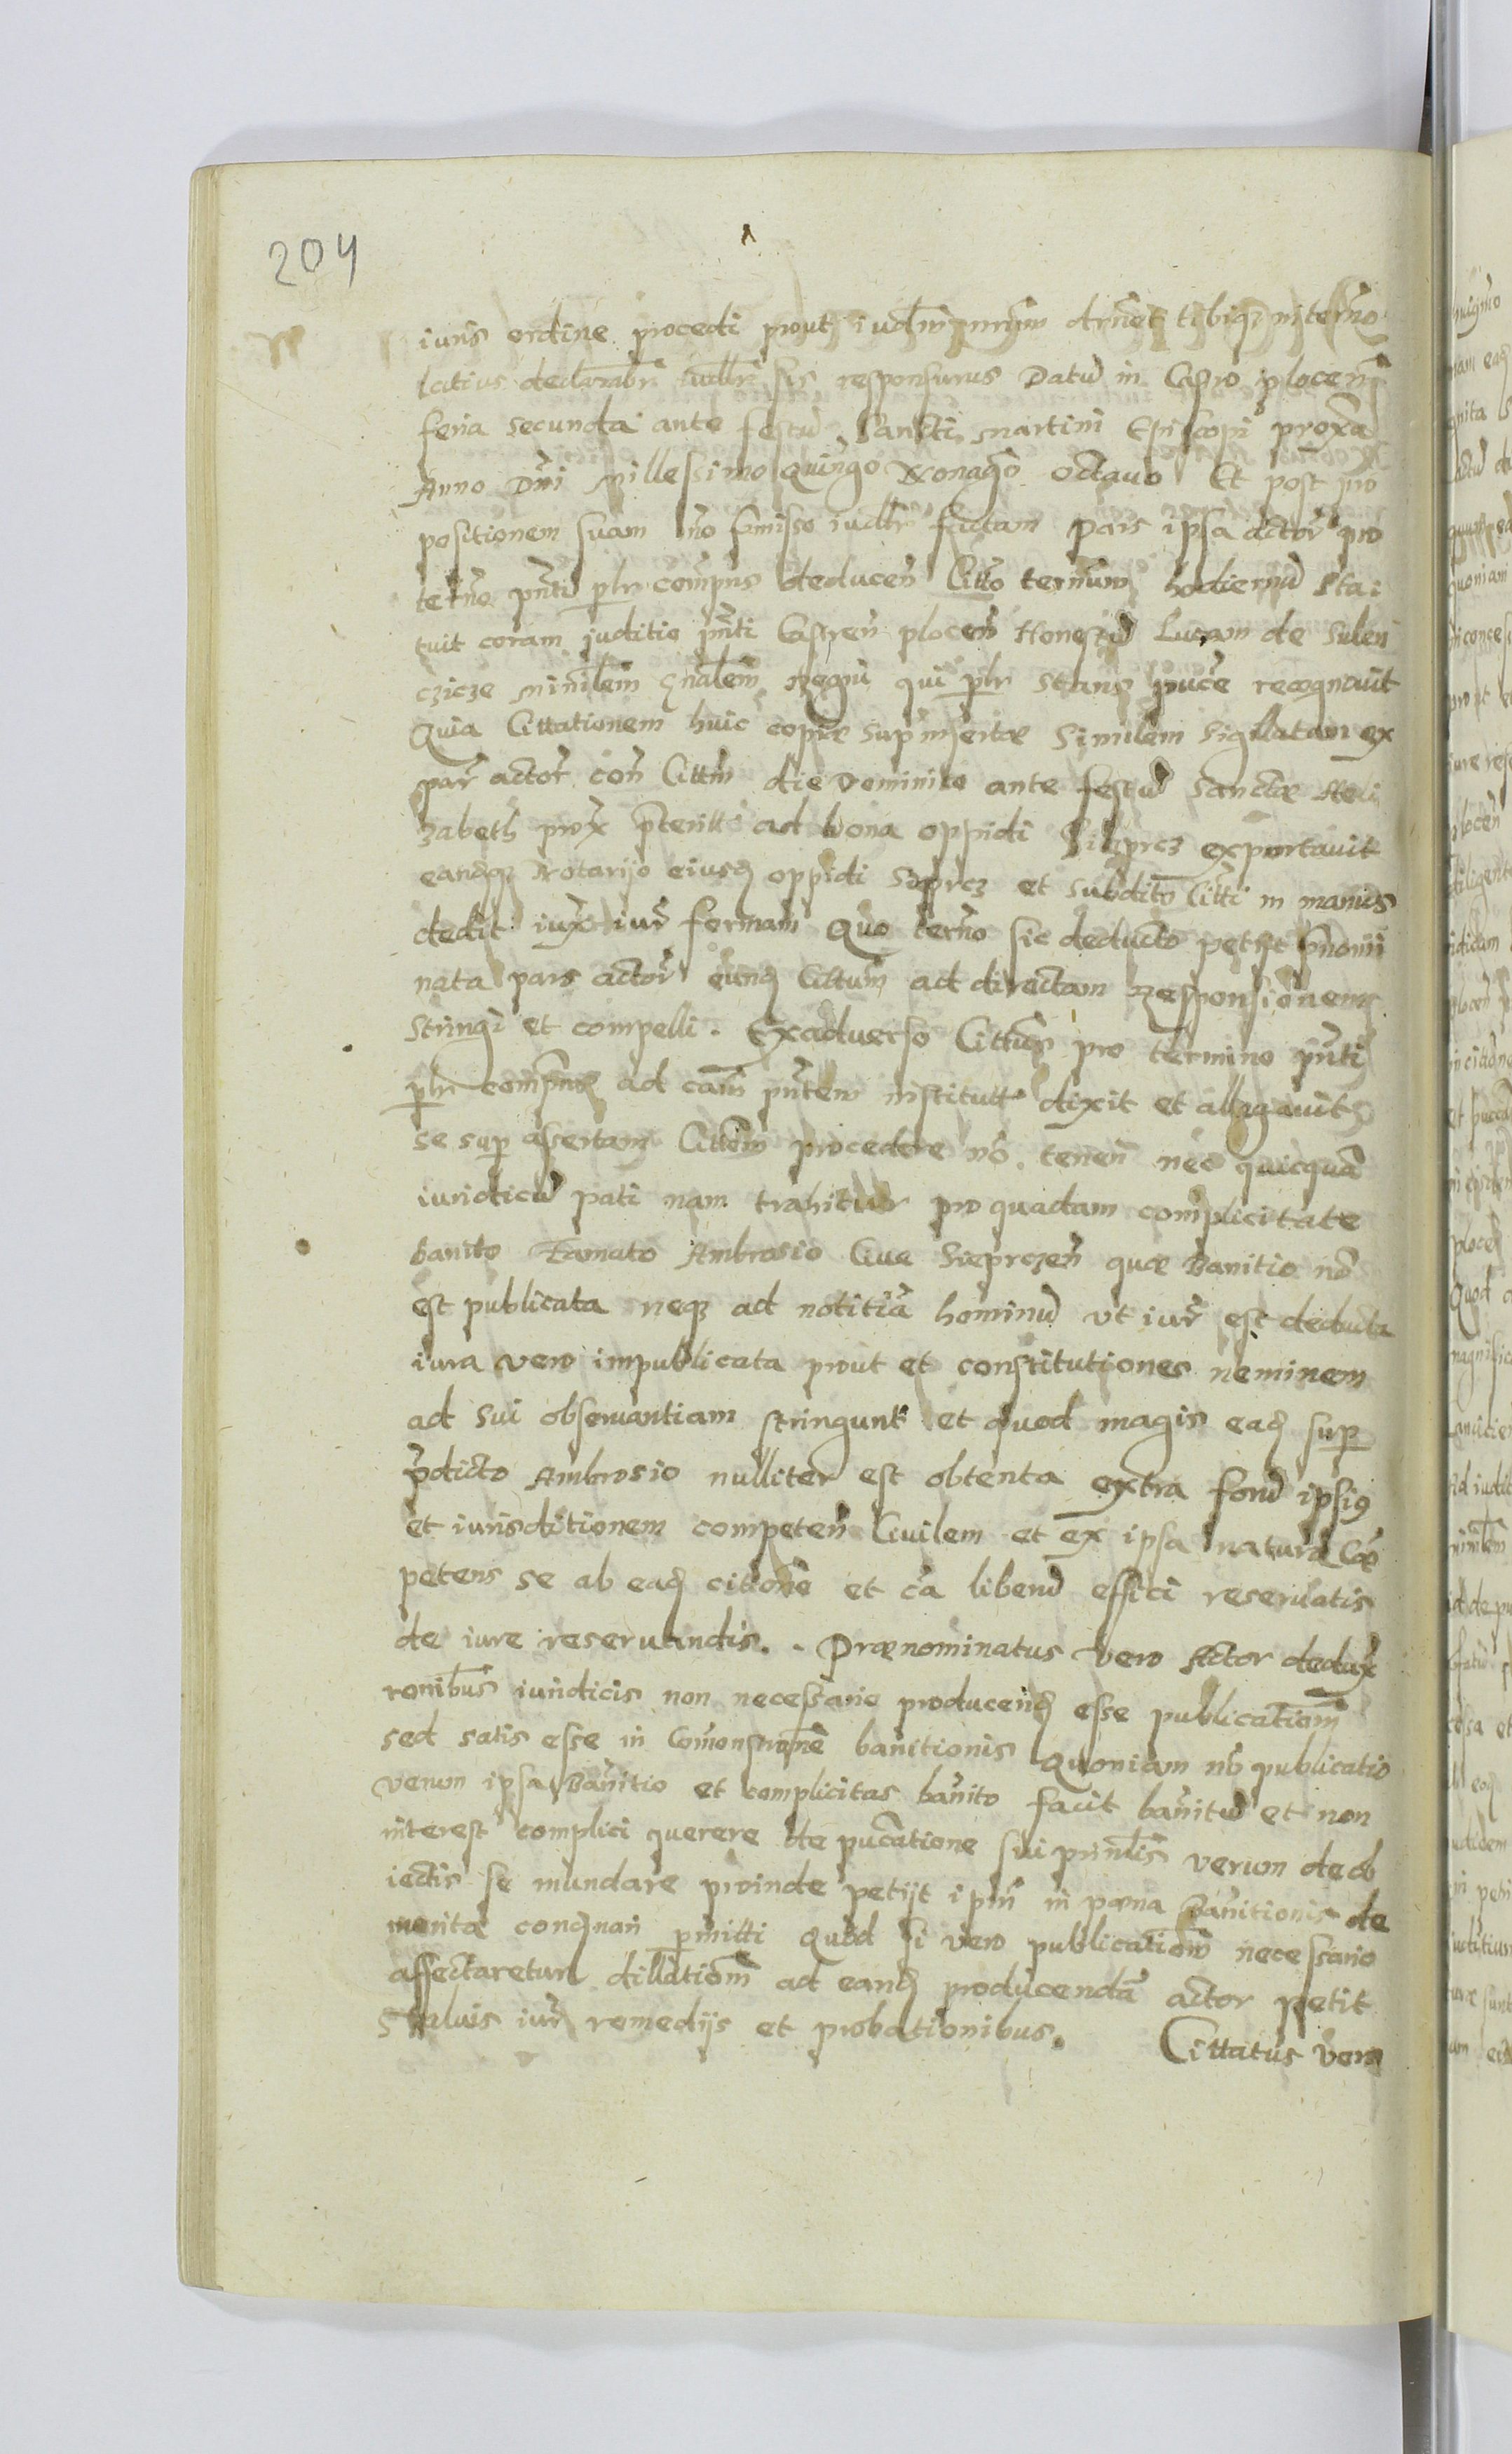 204
iuris ordine procedi prout iudm drnet tibiq in termo
latius declarabr iudlr sis responsurus Datu in Castro plocen
feria secunda ante festu Sancti Martini Episcopi proxa
Anno Dni Millesimo Quingo Nonago octauo Et post pro
positionem suam iudlr factam pars ipsa actor pro
termo pnti plr compns deducen Citto terminum hodiernu sta:
tuit coram juditio pnti Castren plocen Honestu Lucam de Sulen
czicze minilem gnalem Regni qui plr stans puce recognouit
Quia Cittationem huic copiæ sup insertæ similem sigilatam ex
par actor con Cittm die Dominico ante festu Sanctæ Heli
zabeth prox pteriti ad bona oppidi Sieprcz exportauit
eandq Notarijo eiusd oppidi Sieprcz et subdito Citti in manus
dedit iux iur formam Quo termo sic deducto petijt pnomi
nata pars actor eund Cittum ad directam Responsionem
stringi et compelli. Exaduerso Cittus pro termino pnti
plr compns ad cam pntem institutt dixit et allegauit
se sup assertam Cittem procedere no tenen nec quicqua
iuridicu pati nam trahitur pro quadam complicitate
banito Famato Ambrosio Ciue Sieprczen quæ Banitio no
est publicata neq ad notitia hominu vt iur est deducta
iura vero impublicata prout et constitutiones neminem
ad sui obseruantiam stringunt et quod magis ead sup
pdicto Ambrosio nulliter est obtenta extra foru ipsi9
et iurisditionem competen Ciuilem et ex ipsa natura Cæ
petens se ab ead citione et ca liberu effici reseruatis
de iure reseruandis. Prænominatus vero Actor dedux
ronibus iuridicis non necessario producend esse publicationm
sed satis esse in Comonstrone banitionis Quoniam no publicatio
verum ipsa Banitio et complicitas banito facit banitu et non
interest complici querere de pucatione sui prinlis verum de ob
iectis se mundare proinde petijt ipm in pœna Banitionis de
merita condnan pmitti Quod si vero publicationm necessario
affectaretur dillationm ad eand producenda actor petit
Saluis iur remedijs et probationibus. Cittatus vero